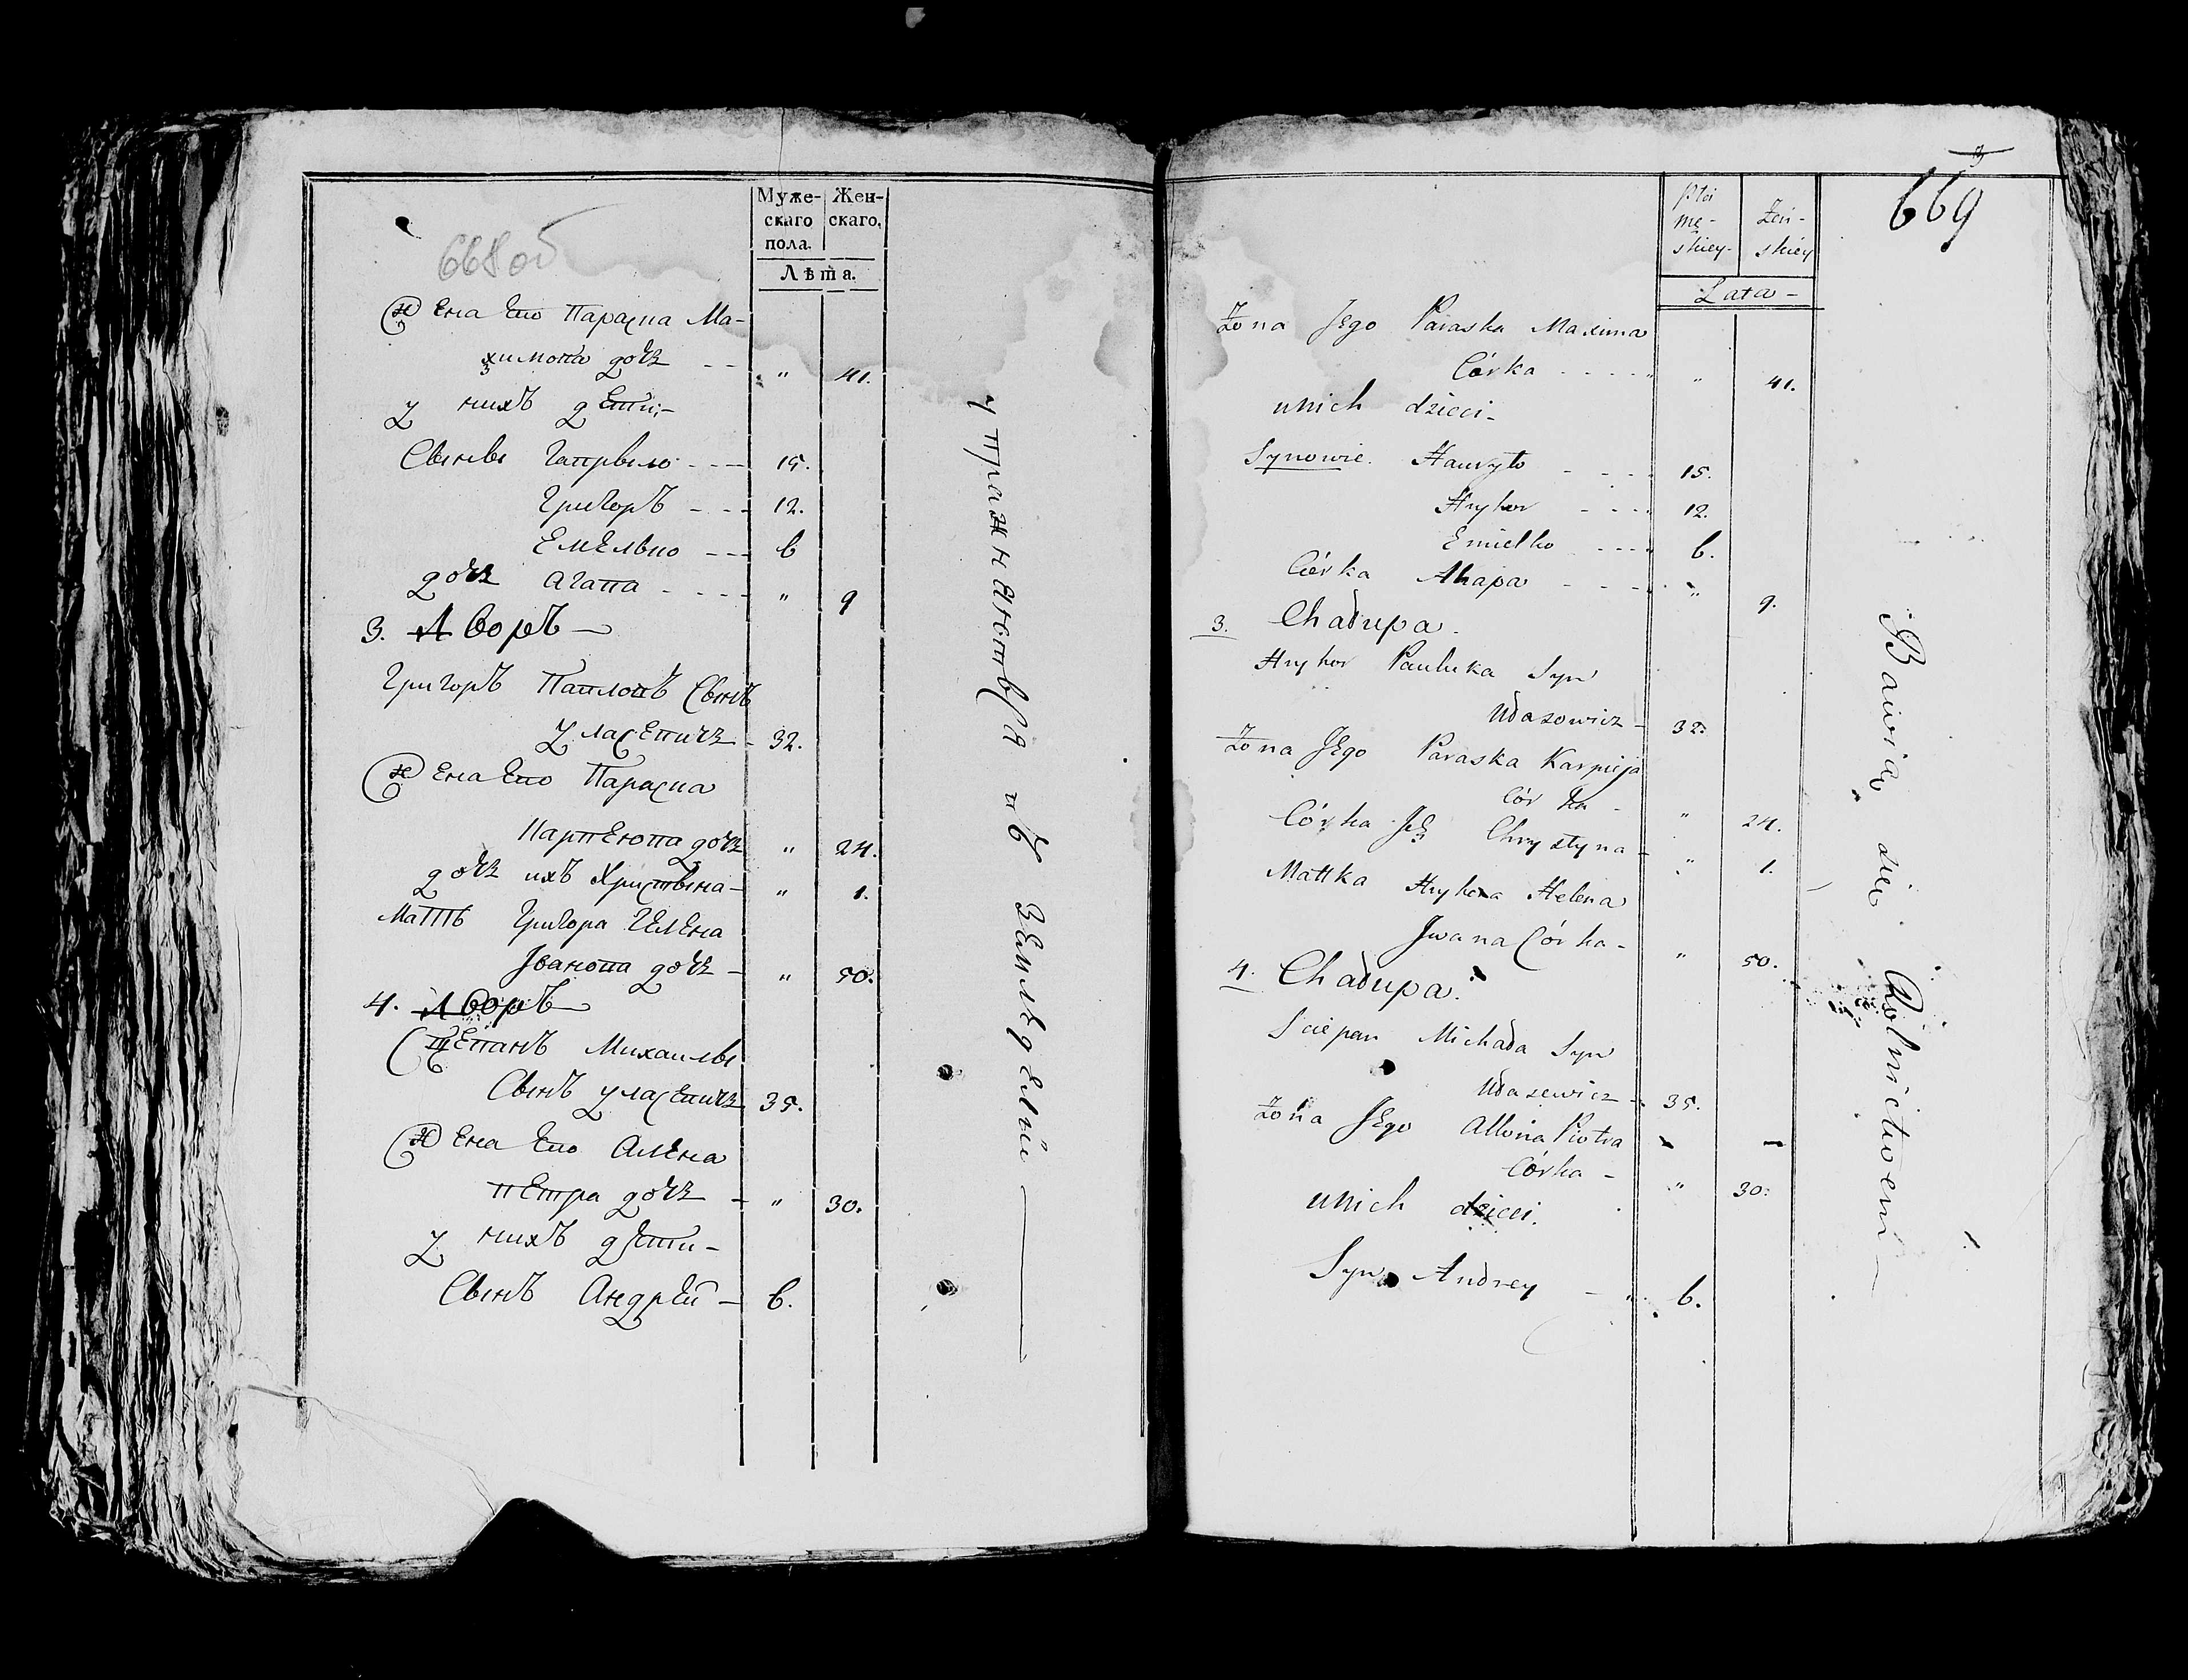 668 об
Муже-
скаго
пола.
Жен-
скаго.
Лѣта.
Жена Его Параска Ма-
химова дочь - - " 41.
у нихъ дети:-
Сынвы Гаврыло - - - 15.
Григоръ - - - 12.
Емелько - - - 6
дочь Агапа - - - - " 9
3. Дворъ —
Григоръ Павловъ Сынъ
Уласевичь - 32.
Жена Его Параска
Карпеюва дочь " 24.
дочь ихъ Христына - " 1.
Матть Григора Гелена
Іванова дочь - " 50.
4. Дворъ —
Стѣпанъ Михаилы
Сынъ Уласевичь 35.
Жена Его Алена
Петра дочь - " 30.
у нихъ дети -
Сынъ Андрей - 6.
упражняются въ земледелии —
669
Płci
mę-
skiey-
Żeń-
skiey
Lata -
Żona Jego Paraska Maxima
Córka - - - - " 41.
unich dzieci -
Synowie. Hawryło - - - 15.
Hryhor - - - 12.
Emielko - - - 6.
Córka Ahapa - - - " 9.
3. Chałupa.
Hryhor Pauluka Syn
Ułasowicz - 32.
Żona Jego Paraska Karpieja
Córka - " 24.
Córka Jch Chrystyna - " 1.
Mattka Hryhora Helena
Jwana Córka - " 50.
4. Chałupa.
Sciepan Michała Syn
Ułasewicz - 35.
Żona Jego Allona Piotra
Córka - " 30.
unich dzieci.
Syn Andrey - 6.
Bawią się Rolnictwem —